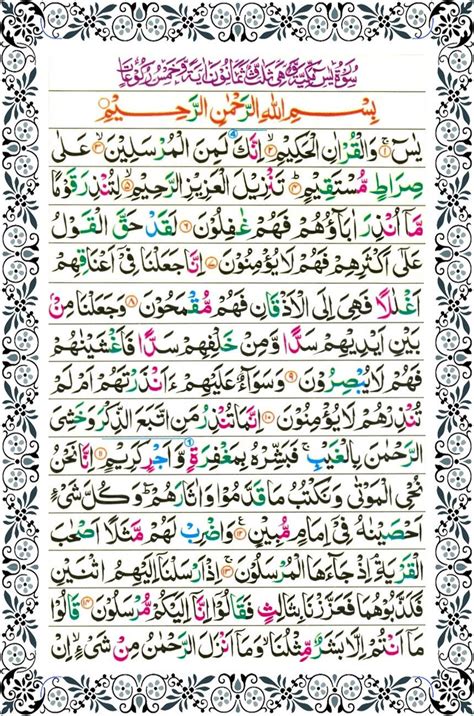 سُوْرَةُ يٰسٓ مَكِّيَّةٌ وَّهِىَ ثَلٰثٌ وَّثَمَانُوْنَ اٰيَةً وَّخَمْسُ رُكُوْعَاتٍ
بِسْمِ اللّٰهِ الرَّحْمٰنِ الرَّحِيْمِ
يٰسٓ ۚ‏﴿۱﴾ وَالْقُرْاٰنِ الْحَكِيْمِ ۙ‏﴿۲﴾ اِنَّكَ لَمِنَ الْمُرْسَلِيْنَ ۙ‏﴿۳﴾ عَلٰى
صِرَاطٍ مُّسْتَقِيْمٍؕ‏﴿۴﴾ تَنْزِيْلَ الْعَزِيْزِ الرَّحِيْمِ ۙ‏﴿۵﴾ لِتُنْذِرَ قَوْمًا
مَّاۤ اُنْذِرَ اٰبَآؤُهُمْ فَهُمْ غٰفِلُوْنَ‏﴿۶﴾ لَقَدْ حَقَّ الْقَوْلُ
عَلٰٓى اَكْثَرِهِمْ فَهُمْ لَا يُؤْمِنُوْنَ‏﴿۷﴾ اِنَّا جَعَلْنَا فِىْۤ اَعْنَاقِهِمْ
اَغْلٰلًا فَهِىَ اِلَى الْاَذْقَانِ فَهُمْ مُّقْمَحُوْنَ‏﴿۸﴾ وَجَعَلْنَا مِنْۢ
بَيْنِ اَيْدِيْهِمْ سَدًّا وَّمِنْ خَلْفِهِمْ سَدًّا فَاَغْشَيْنٰهُمْ
فَهُمْ لَا يُبْصِرُوْنَ‏﴿۹﴾ وَسَوَآءٌ عَلَيْهِمْ ءَاَنْذَرْتَهُمْ اَمْ لَمْ
تُنْذِرْهُمْ لَا يُؤْمِنُوْنَ‏﴿۱۰﴾ اِنَّمَا تُنْذِرُ مَنِ اتَّبَعَ الذِّكْرَ وَخَشِىَ
الرَّحْمٰنَ بِالْغَيْبِۚ فَبَشِّرْهُ بِمَغْفِرَةٍ وَّاَجْرٍ كَرِيْمٍ‏﴿۱۱﴾ اِنَّا نَحْنُ
نُحْىِ الْمَوْتٰى وَنَكْتُبُ مَا قَدَّمُوْا وَاٰثَارَهُمْؕ وَكُلَّ شَىْءٍ
اَحْصَيْنٰهُ فِىْۤ اِمَامٍ مُّبِيْنٍ‏﴿۱۲﴾ وَاضْرِبْ لَهُمْ مَّثَلًا اَصْحٰبَ
الْقَرْيَةِ ۘ اِذْ جَآءَهَا الْمُرْسَلُوْنَۚ‏﴿۱۳﴾ اِذْ اَرْسَلْنَاۤ اِلَيْهِمُ اثْنَيْنِ
فَكَذَّبُوْهُمَا فَعَزَّزْنَا بِثَالِثٍ فَقَالُوْۤا اِنَّاۤ اِلَيْكُمْ مُّرْسَلُوْنَ‏﴿۱۴﴾ قَالُوْا
مَاۤ اَنْتُمْ اِلَّا بَشَرٌ مِّثْلُنَا ۙ وَمَاۤ اَنْزَلَ الرَّحْمٰنُ مِنْ شَىْءٍ ۙ اِنْ